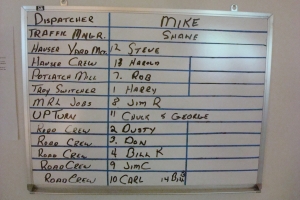 DISPATCHER MIKE
TRAFFIC MNGR. SHANE
HAUSER YARD MGR. 12 STEVE
HAUSER CREW 13 HAROLD
POTLATCH MILL 7. ROB
TROY SWITCHER 1 HARRY
MRL JOBS 8 JIM R
UP TURN 11 CHUCK & GEORGE
ROAD CREW 2 DUSTY
ROAD CREW 3. DON
ROAD CREW 4 BILL K
ROAD CREW 9 JIM C
ROAD CREW 10 CARL 14 BILL